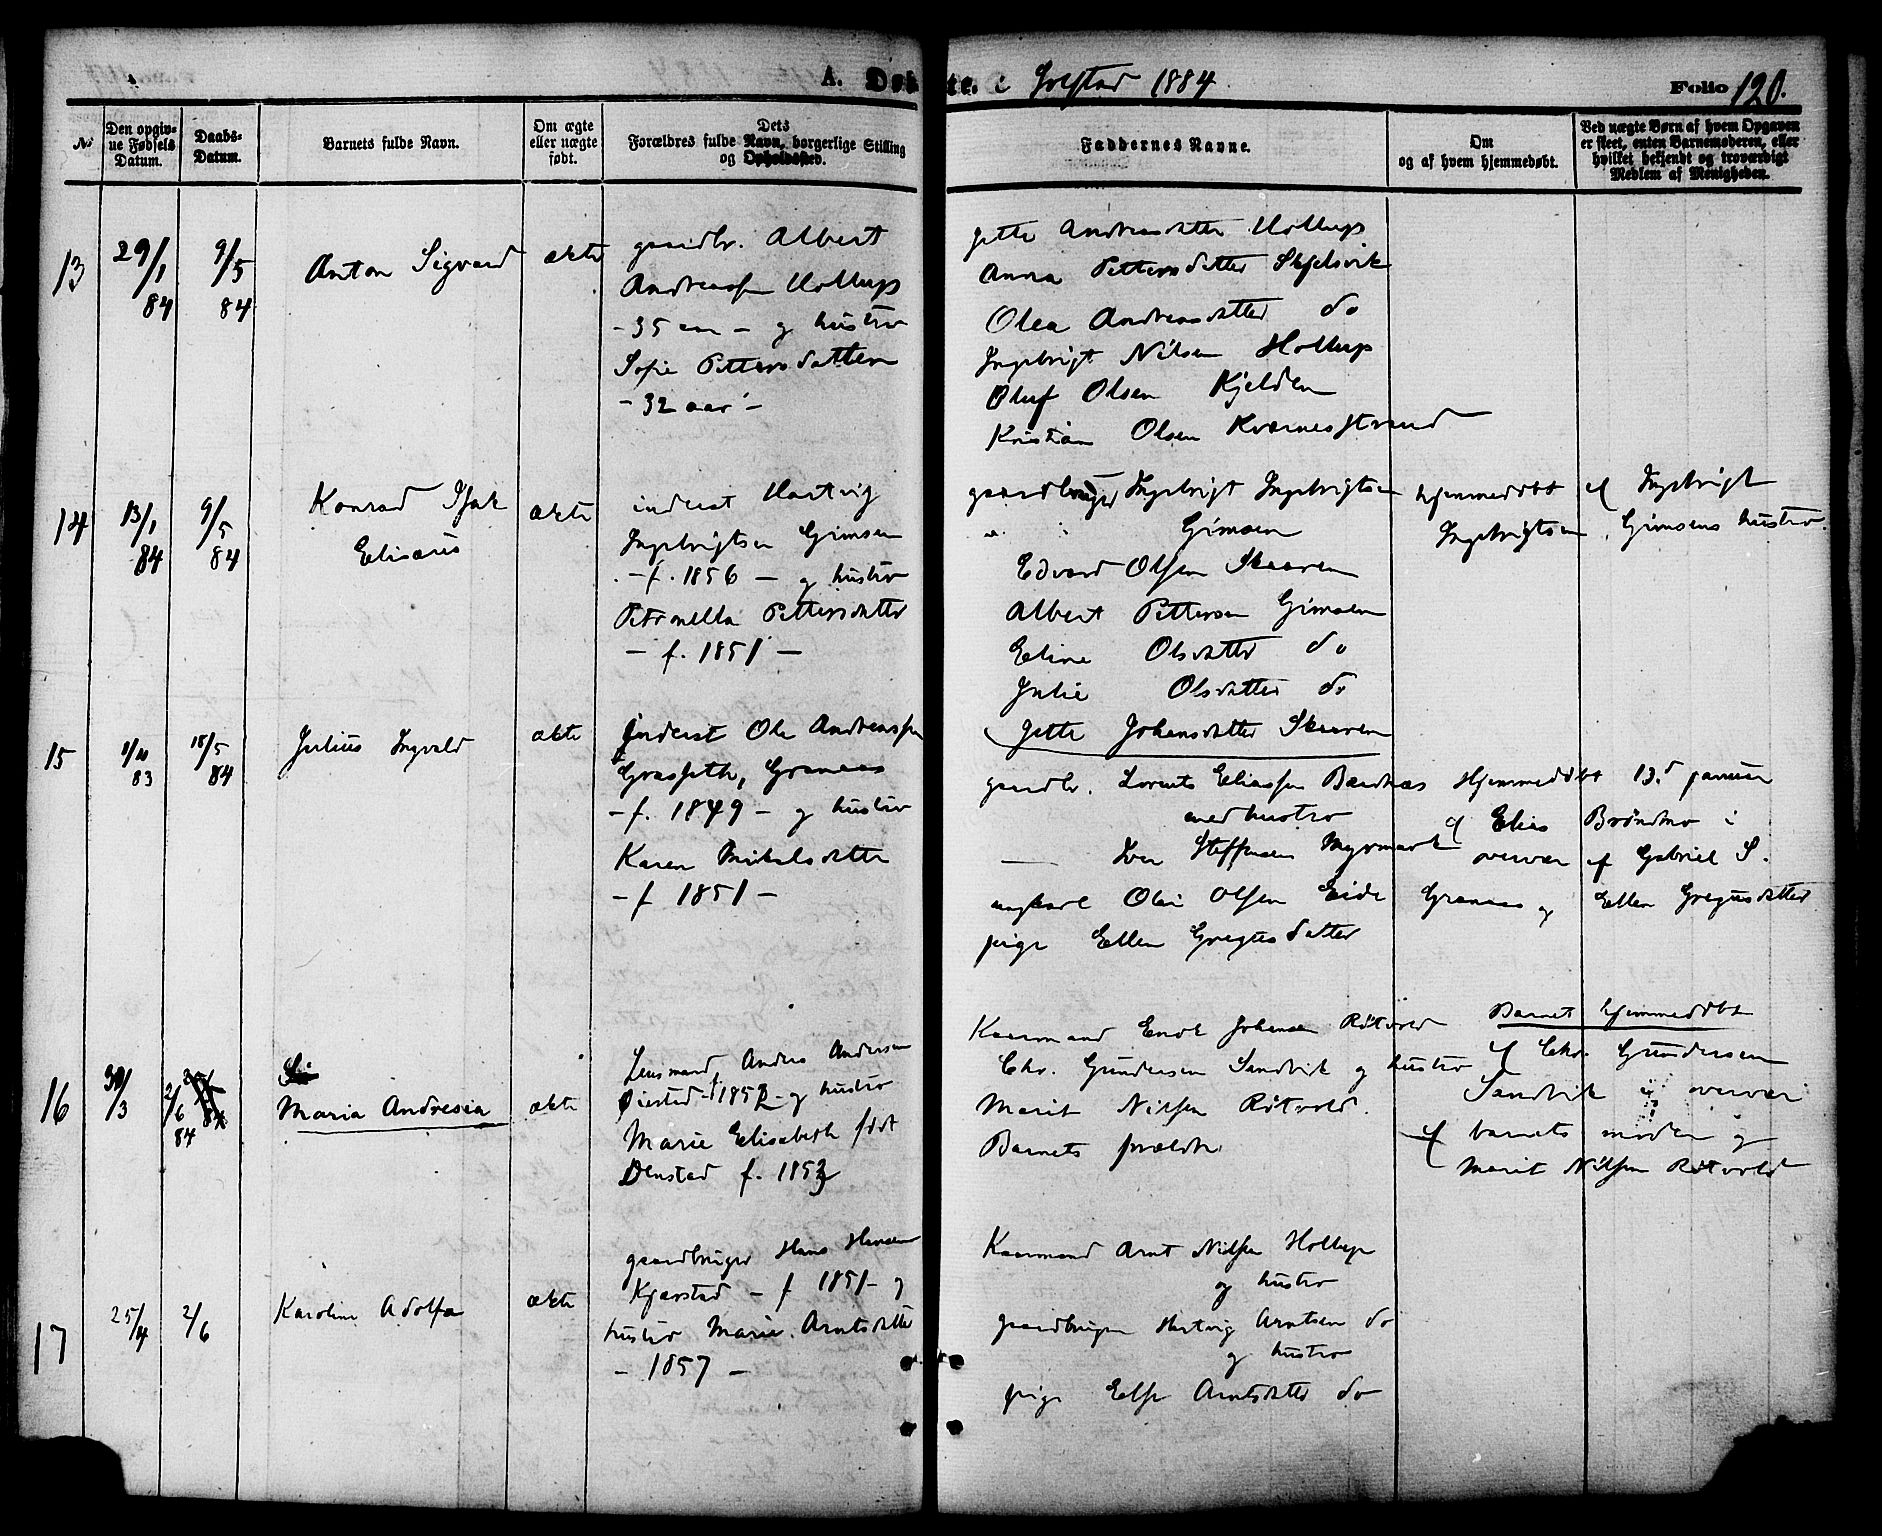 A. Døbte. i Grytad 1884 Folio 120.
№
Den opgivne Fødsels Datum.
Daabs-Datum.
Barnets fulde Navn.
Om ægte eller uægte født.
Dets Forældres fulde Navn, borgerlige Stilling og Opholdssted.
Faddernes Navne.
Om og af hvem hjemmedøbt.
Ved uægte Børn af hvem Opgaven er skeet, enten Barnemoderen, eller hvilket bekjendt og troværdigt Medlem af Menigheden.
13
29/1 84
9/5 84
Anton Sigvard
ækte
gaardbr. Albert
Andreassen Hollup
- 35 aar - og hustro
Sofie Pettersdatter
- 32 aar -
Jette Andreasdatter Hollup
Anna Pettersdatter Skjelsvik
Olea Andreasdatter do
Ingebrigt Nilsen Hollup
Oluf Olsen Kjelden
Kristian Olsen Kværnesstrand
14
13/1 84
9/5 84
Konrad Isak
Elisæus
ækte
inderst Hartvig
Ingebrigtsen Grimsen
- f. 1856 - og hustro
Petronella Pettersdatter
- f. 1851 -
gaardbruger Ingebrigt Ingebrigtsen
Grimsen
Edvard Olsen Skaaren
Albert Pettersen Grimsen
Eline Olsdatter do
Julie Olsdatter do
Jette Johansdatter Skaaren
hjemmedøbt af Ingebrigt
Ingebrigtsen Grimsens hustro.
15
83
18/5 84
Julius Ingvald
ækte
Inderst Ole Andreassen
Granaas
- f. 1849 - og hustro
Karen Mikalsdatter
- f 1851 -
gaardbr. Lorents Eliassen
med hustro
Iver Steffensen Myrmark
ungkarl Olai Olsen Eide
pige Ellen Gregusdatter
Hjemmedøbt 13d januar
af Elias Brøndmo i
overvær af Gabriel S.
Granaas og Ellen Gregusdatter
16
30/3
2/6 84
Maria Andresia
ækte
Lensmand Andres Andersen
Øiestad f 1852 og hustro
Marie Elisabeth født
Denstad f. 1853
Kaarmand Enok Johansen Røtvold
Chr. Gundersen Sandvik og hustro
Marit Nilsen Røtvold.
Barnets forældre
Barnet hjemmedøbt
af Chr. Gundersen
Sandvik i overvær
af barnets moder og
Marit Nilsen Røtvold
17
25/4
2/6
Karoline Adolfa
ækte
gaardbruger Hans Hansen
Kjærstad - f 1851 - og
hustro Marie Arntsdatter
- 1857 -
Kaarmand Arnt Nilsen Hollup
og hustro
gaardbruger Hartvig Arntsen do
og hustro
pige Else Arntsdatter do